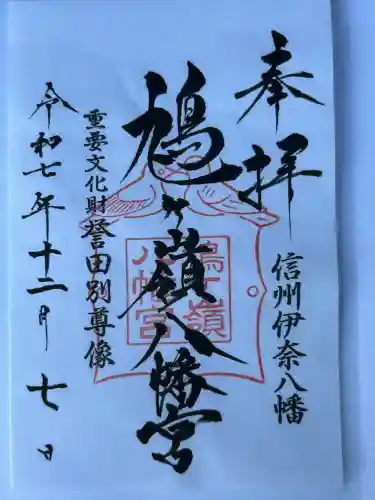 奉拝
信州伊奈八幡
鳩ヶ嶺八幡宮
鳩ヶ嶺
八幡宮
重要文化財誉田別尊像
令和七年十二月七日